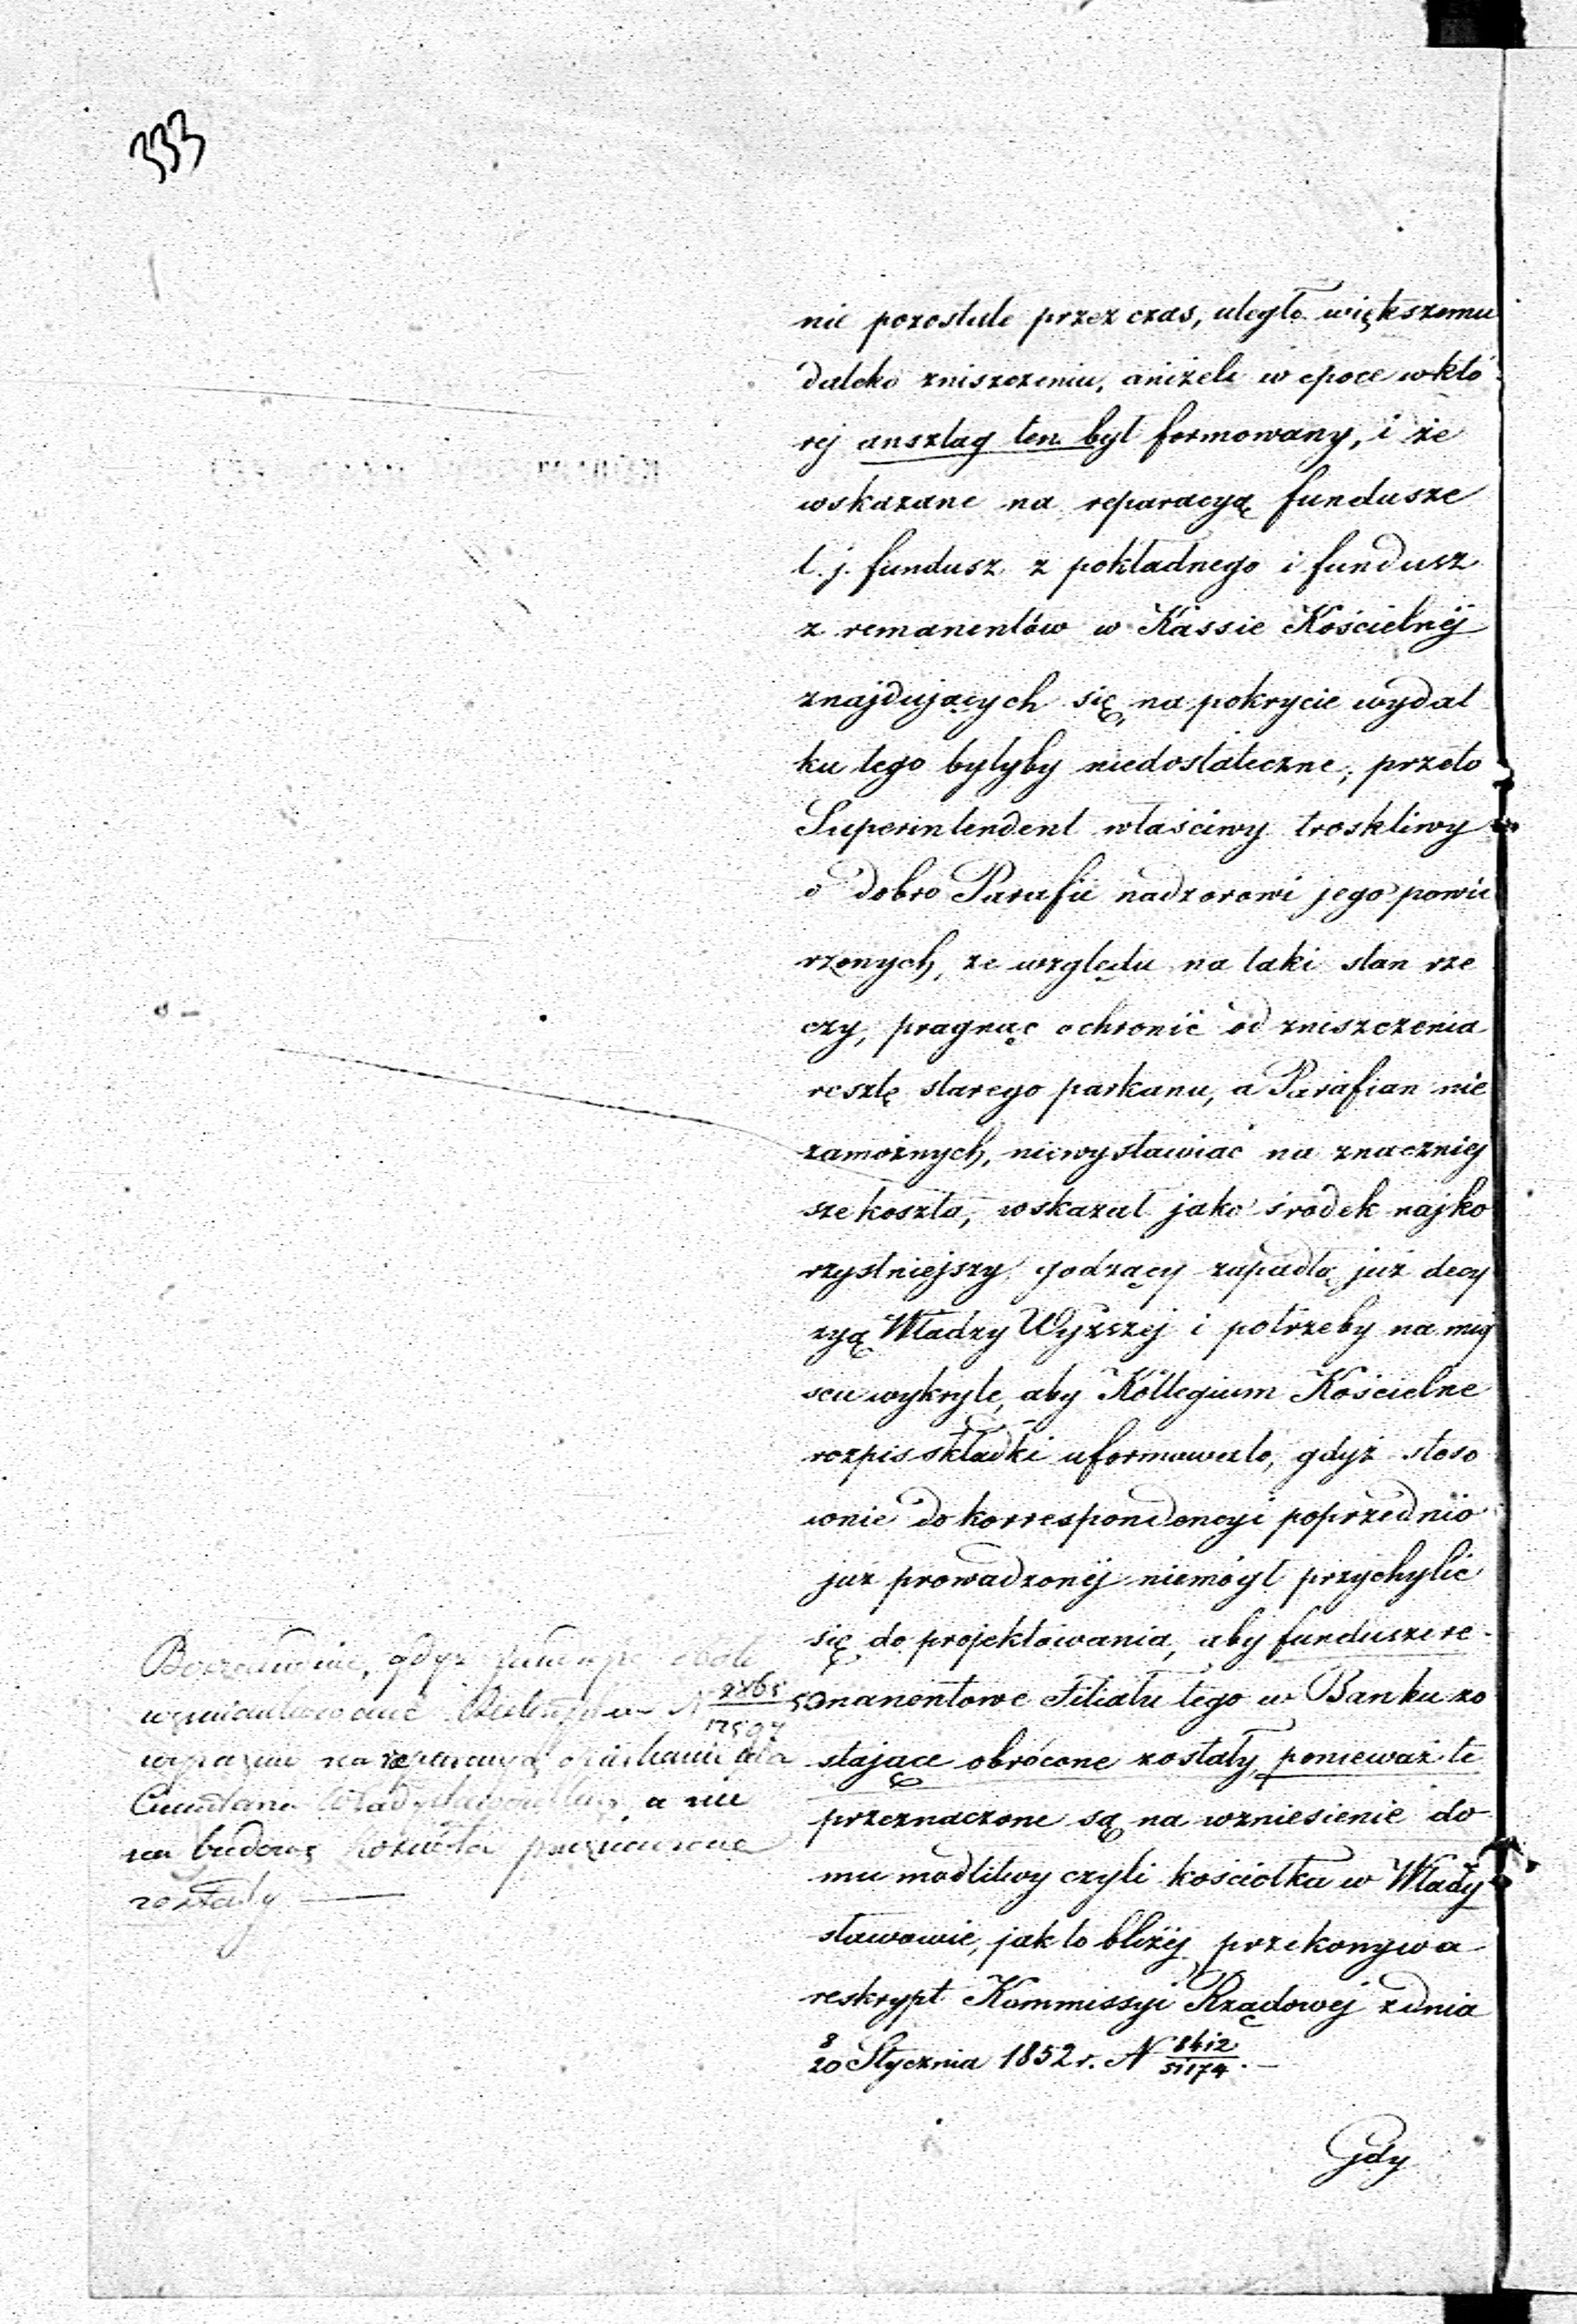 333
nie pozostałe przez czas, uległo większemu
daleko zniszczeniu, aniżeli w epoce w któ
rej anszlag ten był formowany, i że
wskazane na reparacyą fundusze
t. j. fundusz z pokładnego i fundusz
z remanentów w Kassie Kościelnej
znajdujących się, na pokrycie wydat
ku tego byłyby niedostateczne; przeto
Superintendent właściwy troskliwy
o dobro Parafii nadzorowi jego powie
rzonych, ze względu na taki stan rze
czy, pragnąc ochronić od zniszczenia
resztę starego parkanu, a Parafian nie
zamożnych, niewystawiać na znaczniej
sze koszta, wskazał jako środek najko
rzystniejszy godzący zapadłą już decy
zyą Władzy Wyższej i potrzeby na miej
scu wykryte, aby Kollegium Kościelne
rozpis składki uformowało, gdyż stoso
wnie do korrespondencyi poprzednio
już prowadzonej niemógł przychylić
się do projektowania, aby fundusze re
manentowe Filiału tego w Banku zo
stające obrócone zostały, ponieważ te
przeznaczone są na wzniesienie do
mu modlitwy czyli kościołka w Włady
sławowie, jak to bliżej przekonywa
reskrypt Kommissyi Rządowej z dnia
8/20 Stycznia 1852 r. N 8412/51174. –
Gdy
gdyż
N 2865/17597
wyraźnie na reparacyą parkanu dla
Cmentarza a nie
na budowę kościoła przeznaczone
zostały —